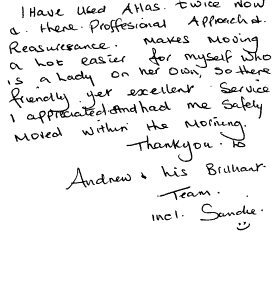 I Have used Atlas. twice now
a. there. Proffesional Approch &.
Reasurerance. Makes Moving
a hot easier for myself who
is a Lady on her own, so there
friendly yet excellent. Service
I appriciated and had me safely
Moved within the Morning.
Thankyou. to
Andrew & his Brilliant.
Team.
incl. Sandie.